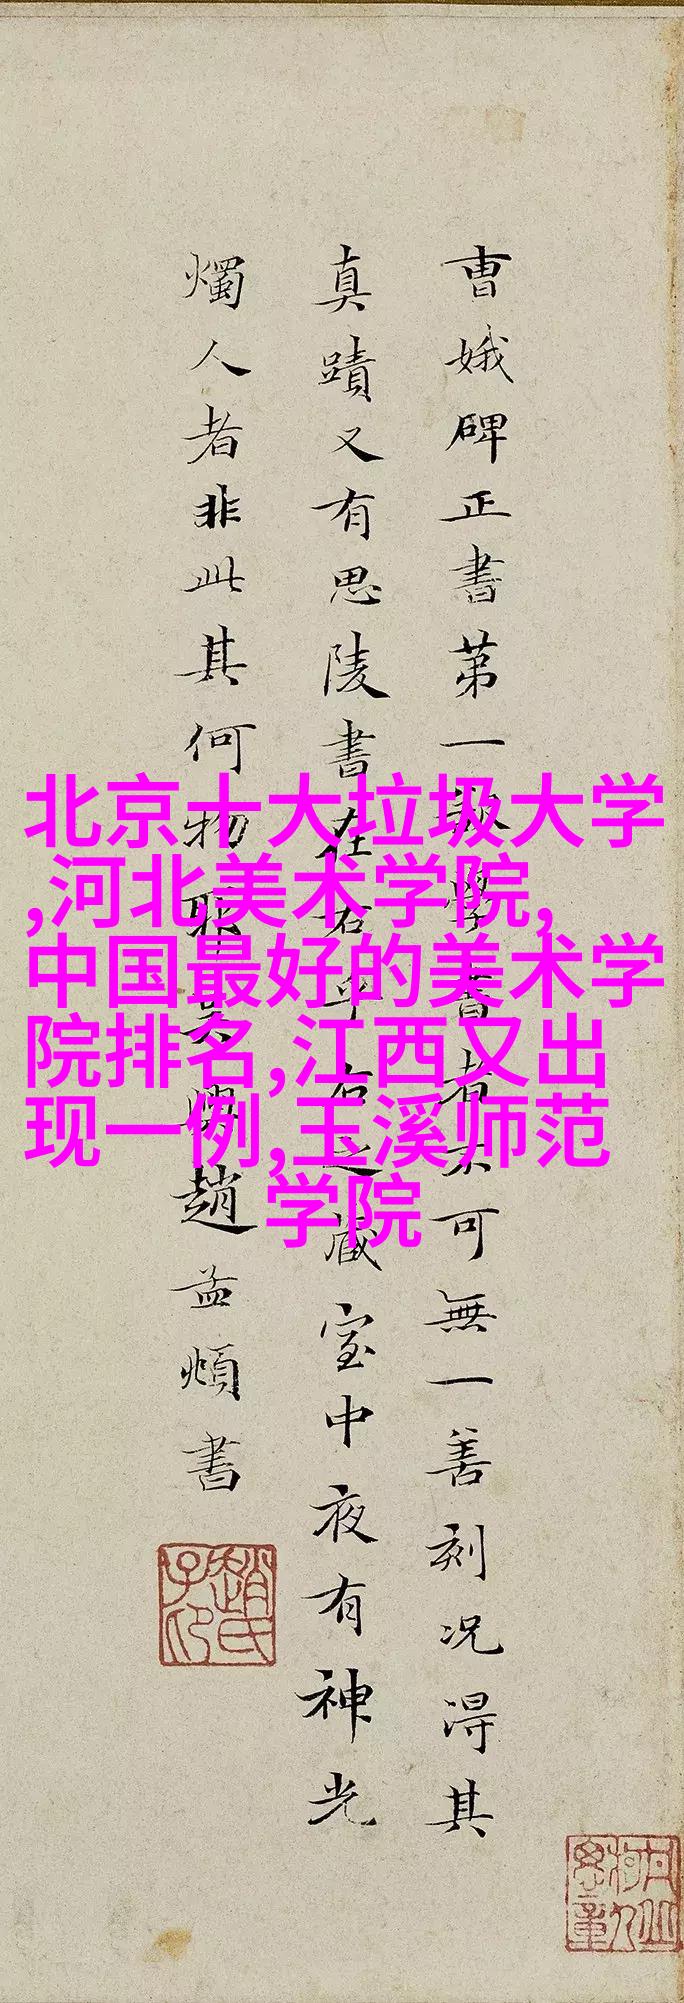 北京十大垃圾大学
,河北美术学院,
中国最好的美术学
院排名,江西又出
现一例,玉溪师范
学院
曹娥碑正書第一欲學書者不可無一善刻況得其
真蹟又有思陵書在右乎右之藏室中夜有神光
燭人者非此其何物耶吳興趙孟頫書
趙氏子印